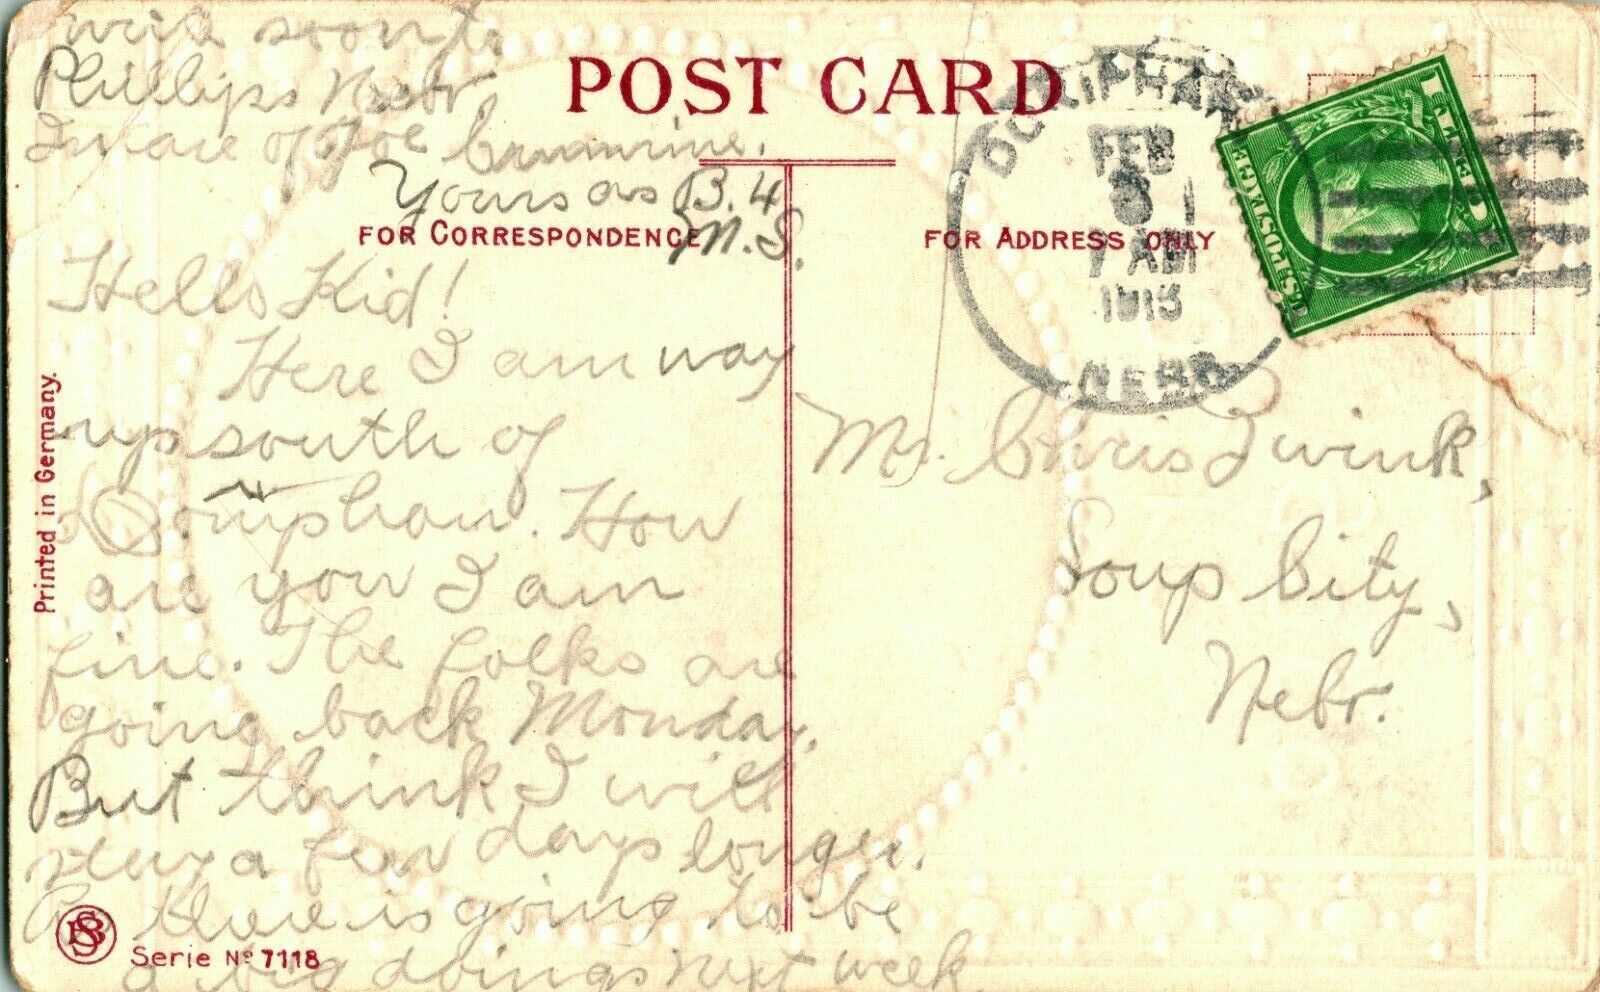 POST CARD
FOR CORRESPONDENCE
FOR ADDRESS ONLY
Hello Kid!
Here I am way
up south of
Doniphan. How
are you I am
fine. The folks are
going back Monday.
But think I will
stay a few days longer.
As there is going to be
a big doings next week
write soon to
Phillips Nebr.
In care of Joe
Yours as B. 4
M. S.
DONIPHAN
FEB
8
7 AM
1913
NEBR.
U.S. POSTAGE
Mr. Chris Zwink,
Loup City,
Nebr.
Printed in Germany.
Serie No 7118